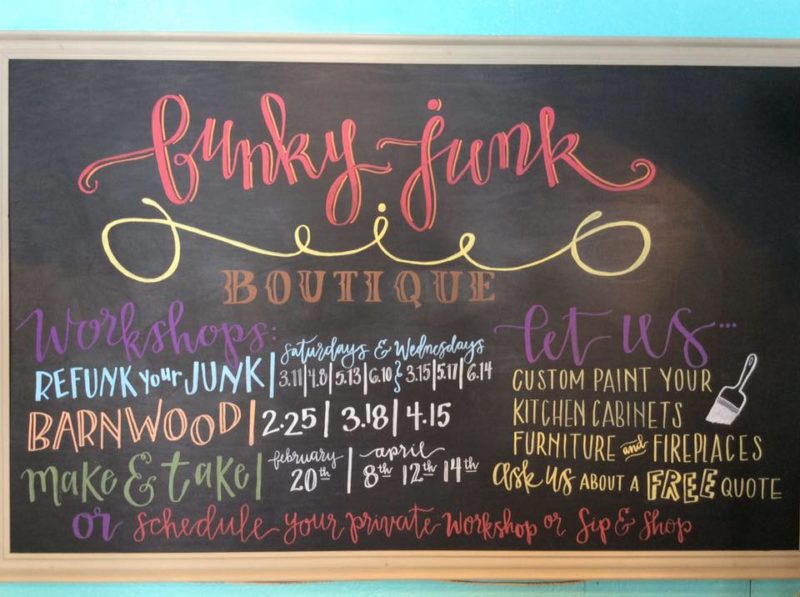 funky junk
BOUTIQUE
Workshops:
REFUNK your JUNK | Saturdays & Wednesdays
3.11 | 4.8 | 5.13 | 6.10 } 3.15 | 5.17 | 6.14
BARNWOOD | 2.25 | 3.18 | 4.15
make & take | february 20th | april 8th 12th 14th
let us...
CUSTOM PAINT YOUR
KITCHEN CABINETS
FURNITURE and FIREPLACES
ask us ABOUT A FREE QUOTE
or schedule your private workshop or Sip & Shop